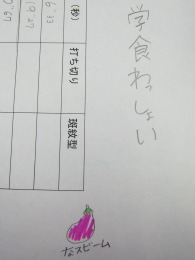 学食わっしょい
(秒)
打ち切り
斑紋型
なスビーム